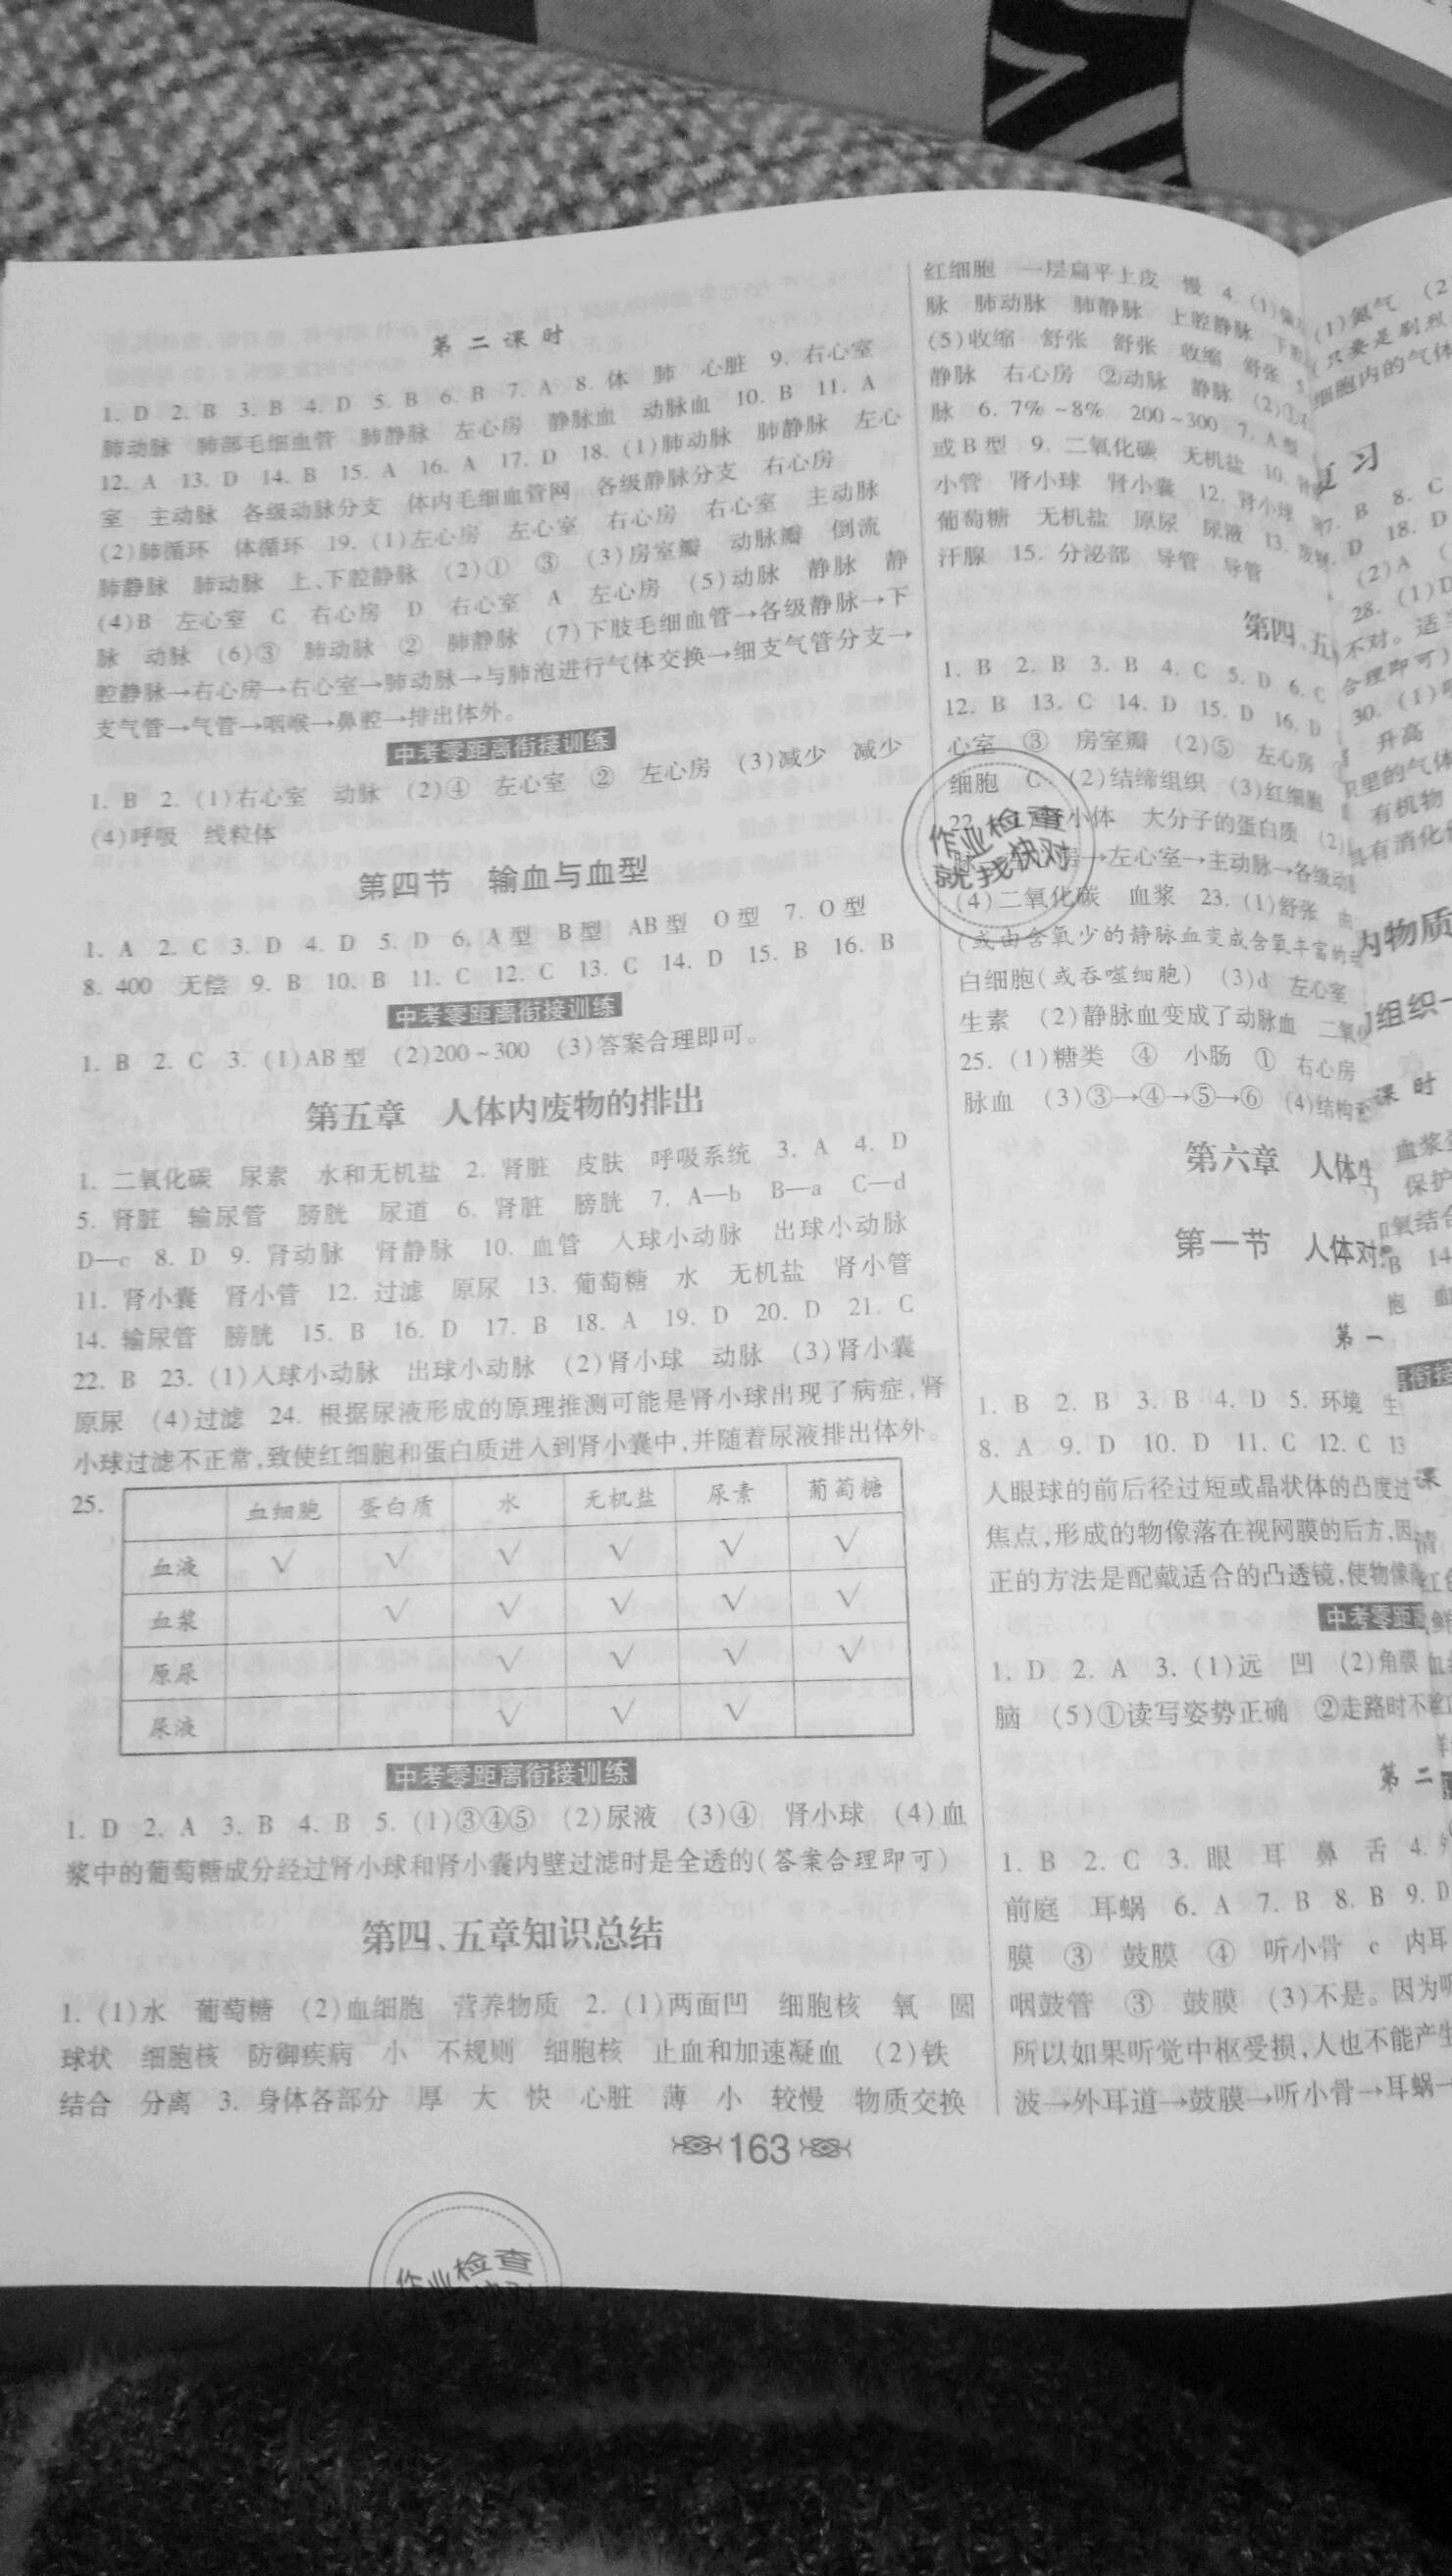 第二课时
1. D 2. B 3. B 4. D 5. B 6. B 7. A 8. 体 肺 心脏 9. 右心室
肺动脉 肺部毛细血管 肺静脉 左心房 静脉血 动脉血 10. B 11. A
12. A 13. D 14. B 15. A 16. A 17. D 18. (1)肺动脉 肺静脉 左心
室 主动脉 各级动脉分支 体内毛细血管网 各级静脉分支 右心房
(2)肺循环 体循环 19. (1)左心房 左心室 右心房 右心室 主动脉
肺静脉 肺动脉 上、下腔静脉 (2)① ③ (3)房室瓣 动脉瓣 倒流
(4)B 左心室 C 右心房 D 右心室 A 左心房 (5)动脉 静脉 静
脉 动脉 (6)③ 肺动脉 ② 肺静脉 (7)下肢毛细血管→各级静脉→下
腔静脉→右心房→右心室→肺动脉→与肺泡进行气体交换→细支气管分支→
支气管→气管→咽喉→鼻腔→排出体外。
中考零距离衔接训练
1. B 2. (1)右心室 动脉 (2)④ 左心室 ② 左心房 (3)减少 减少
(4)呼吸 线粒体
第四节 输血与血型
1. A 2. C 3. D 4. D 5. D 6. A型 B型 AB型 O型 7. O型
8. 400 无偿 9. B 10. B 11. C 12. C 13. C 14. D 15. B 16. B
中考零距离衔接训练
1. B 2. C 3. (1)AB型 (2)200~300 (3)答案合理即可。
第五章 人体内废物的排出
1. 二氧化碳 尿素 水和无机盐 2. 肾脏 皮肤 呼吸系统 3. A 4. D
5. 肾脏 输尿管 膀胱 尿道 6. 肾脏 膀胱 7. A—b B—a C—d
D—c 8. D 9. 肾动脉 肾静脉 10. 血管 入球小动脉 出球小动脉
11. 肾小囊 肾小管 12. 过滤 原尿 13. 葡萄糖 水 无机盐 肾小管
14. 输尿管 膀胱 15. B 16. D 17. B 18. A 19. D 20. D 21. C
22. B 23. (1)入球小动脉 出球小动脉 (2)肾小球 动脉 (3)肾小囊
原尿 (4)过滤 24. 根据尿液形成的原理推测可能是肾小球出现了病症,肾
小球过滤不正常,致使红细胞和蛋白质进入到肾小囊中,并随着尿液排出体外。
25.
血细胞 蛋白质 水 无机盐 尿素 葡萄糖
血液 √ √ √ √ √ √
血浆 √ √ √ √ √
原尿 √ √ √ √
尿液 √ √ √
中考零距离衔接训练
1. D 2. A 3. B 4. B 5. (1)③④⑤ (2)尿液 (3)④ 肾小球 (4)血
浆中的葡萄糖成分经过肾小球和肾小囊内壁过滤时是全透的(答案合理即可)
第四、五章知识总结
1. (1)水 葡萄糖 (2)血细胞 营养物质 2. (1)两面凹 细胞核 氧 圆
球状 细胞核 防御疾病 小 不规则 细胞核 止血和加速凝血 (2)铁
结合 分离 3. 身体各部分 厚 大 快 心脏 薄 小 较慢 物质交换
红细胞 一层扁平上皮 慢 4. (1)
脉 肺动脉 肺静脉 上腔静脉 下
(5)收缩 舒张 舒张 收缩 舒张 5
静脉 右心房 ②动脉 静脉 (2)①
脉 6. 7%~8% 200~300 7. A型
或B型 9. 二氧化碳 无机盐 10.
小管 肾小球 肾小囊 12. 肾小球
葡萄糖 无机盐 原尿 尿液 13.
汗腺 15. 分泌部 导管 导管
第四、五
1. B 2. B 3. B 4. C 5. D 6. C
12. B 13. C 14. D 15. D 16. D
心室 ③ 房室瓣 (2)⑤ 左心房
细胞 C (2)结缔组织 (3)红细胞
22. 小体 大分子的蛋白质 (2)
房→左心室→主动脉→各级动
(4)二氧化碳 血浆 23. (1)舒张
(或由含氧少的静脉血变成含氧丰富的
白细胞(或吞噬细胞) (3)d 左心室
生素 (2)静脉血变成了动脉血 二氧
25. (1)糖类 ④ 小肠 ① 右心房
脉血 (3)③→④→⑤→⑥ (4)结构
第六章 人体生
第一节 人体对
第一
1. B 2. B 3. B 4. D 5. 环境 生
8. A 9. D 10. D 11. C 12. C 13
人眼球的前后径过短或晶状体的凸度过
焦点,形成的物像落在视网膜的后方,因
正的方法是配戴适合的凸透镜,使物像
中考零距
1. D 2. A 3. (1)远 凹 (2)角膜
脑 (5)①读写姿势正确 ②走路时不
第二
1. B 2. C 3. 眼 耳 鼻 舌 4.
前庭 耳蜗 6. A 7. B 8. B 9. D
膜 ③ 鼓膜 ④ 听小骨 c 内耳
咽鼓管 ③ 鼓膜 (3)不是。因为
所以如果听觉中枢受损,人也不能产生
波→外耳道→鼓膜→听小骨→耳蜗
163
作业检查
就找快对
作业检查
(1)氮气 (2
(只要是剧烈
细胞内的气体
复习
7. B 8. C
D 18. D
(2)A
28. (1)D
不对。适
合理即可)
30. (1)
升高
里的气体
有机物
具有消化
内物质
组织
课时
血浆
保护
氧结合
B 14
胞 血
衔接
课
清